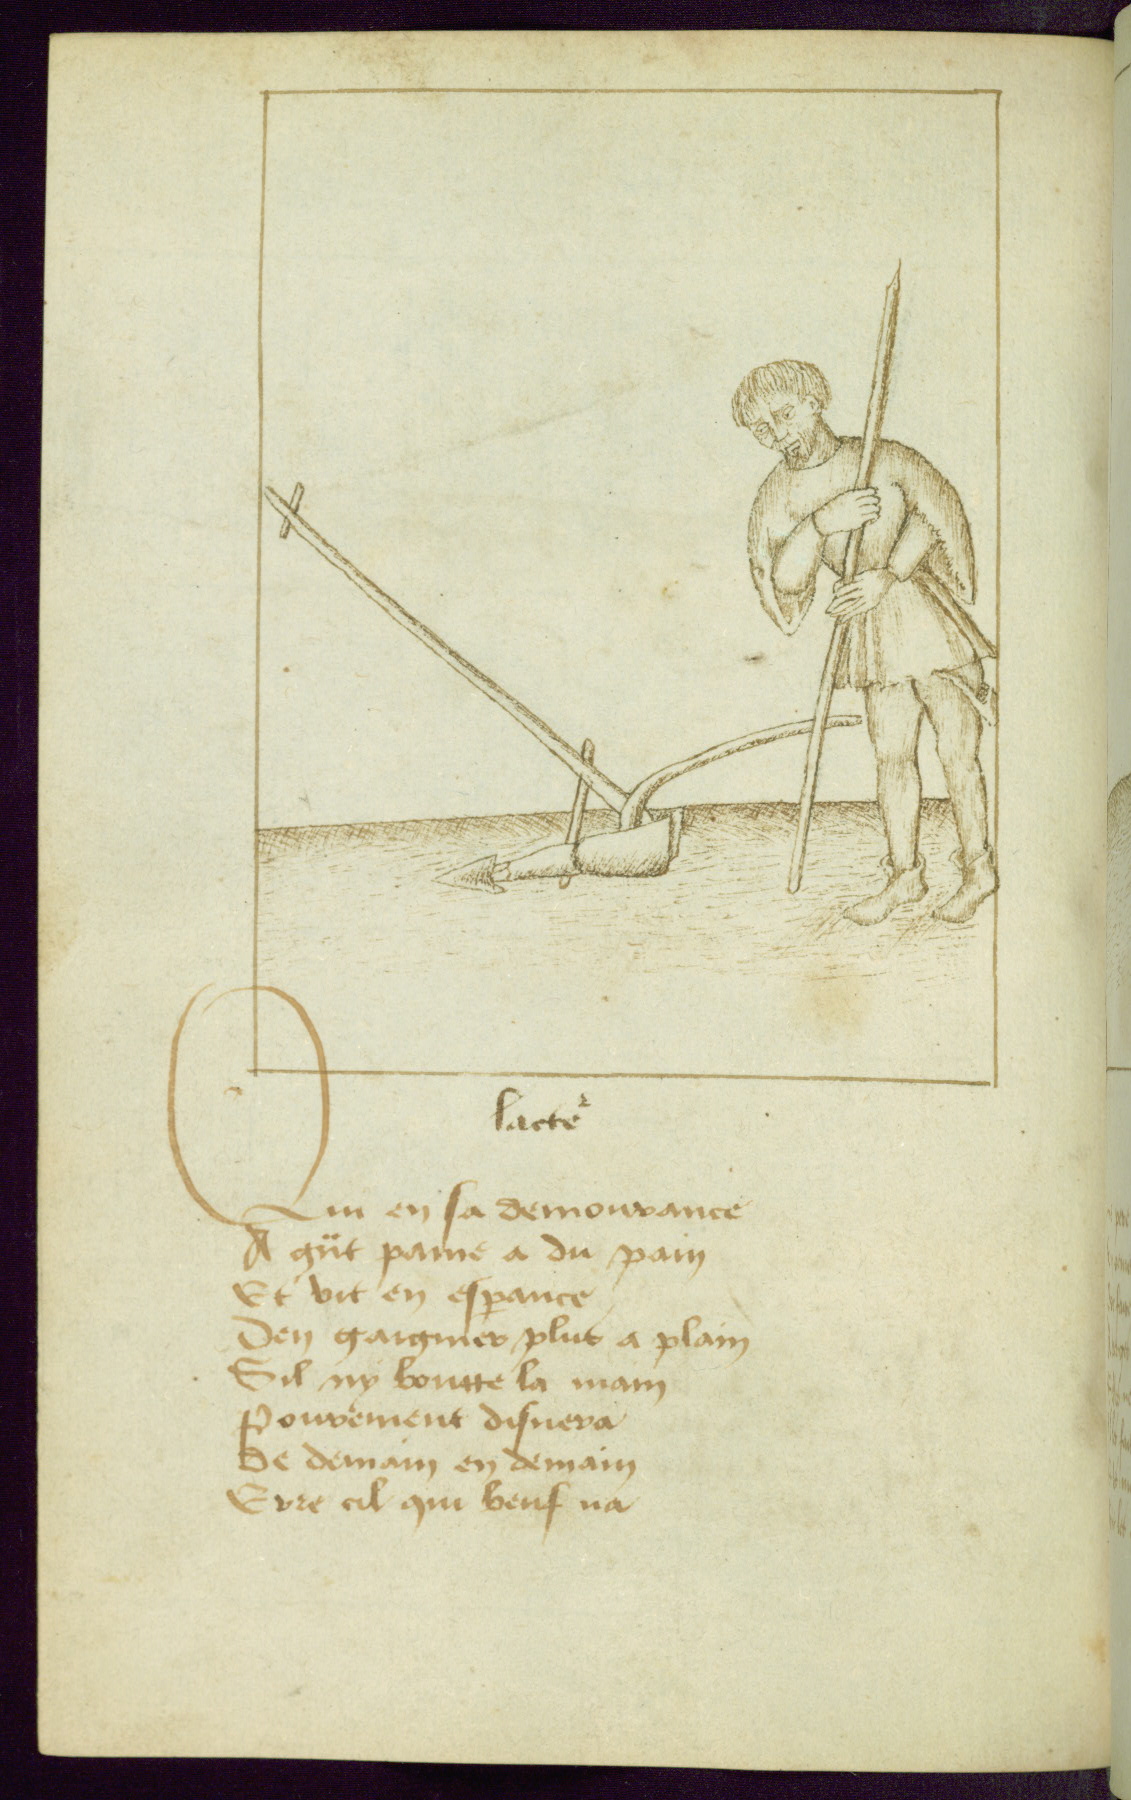 lacte²
Qui en sa demourance
A gũt paine a du pain
Et vit en esꝑance
Den gaigner plus a plain
Sil ny boutte la main
Pouvrement disnera
De demain en demain
Erre cil qui beuf na